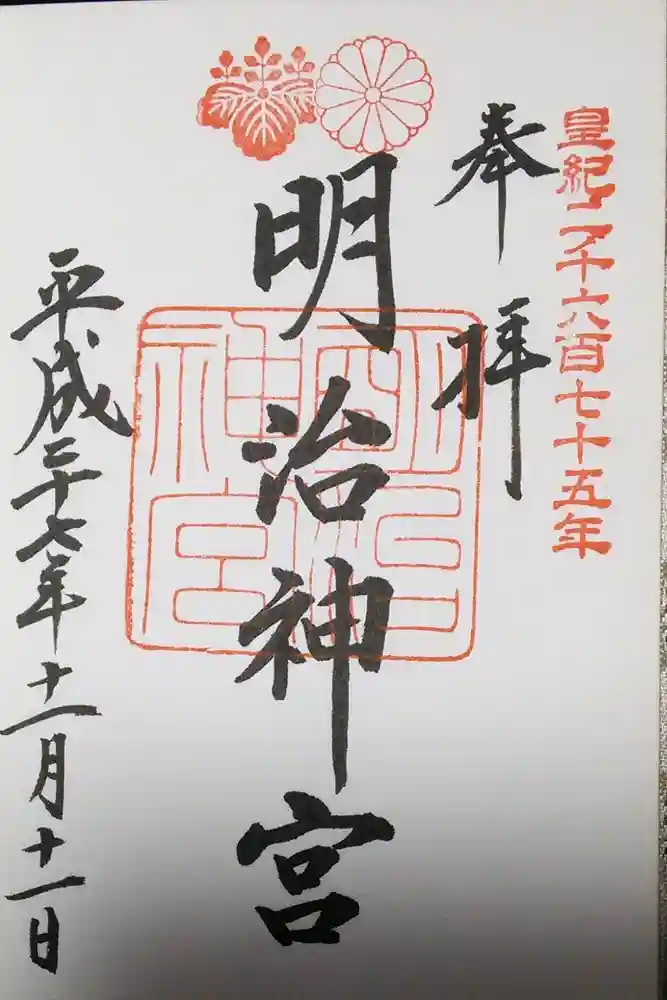 皇紀二千六百七十五年
奉拝
明治神宮
明治神宮
平成二十七年十一月十一日